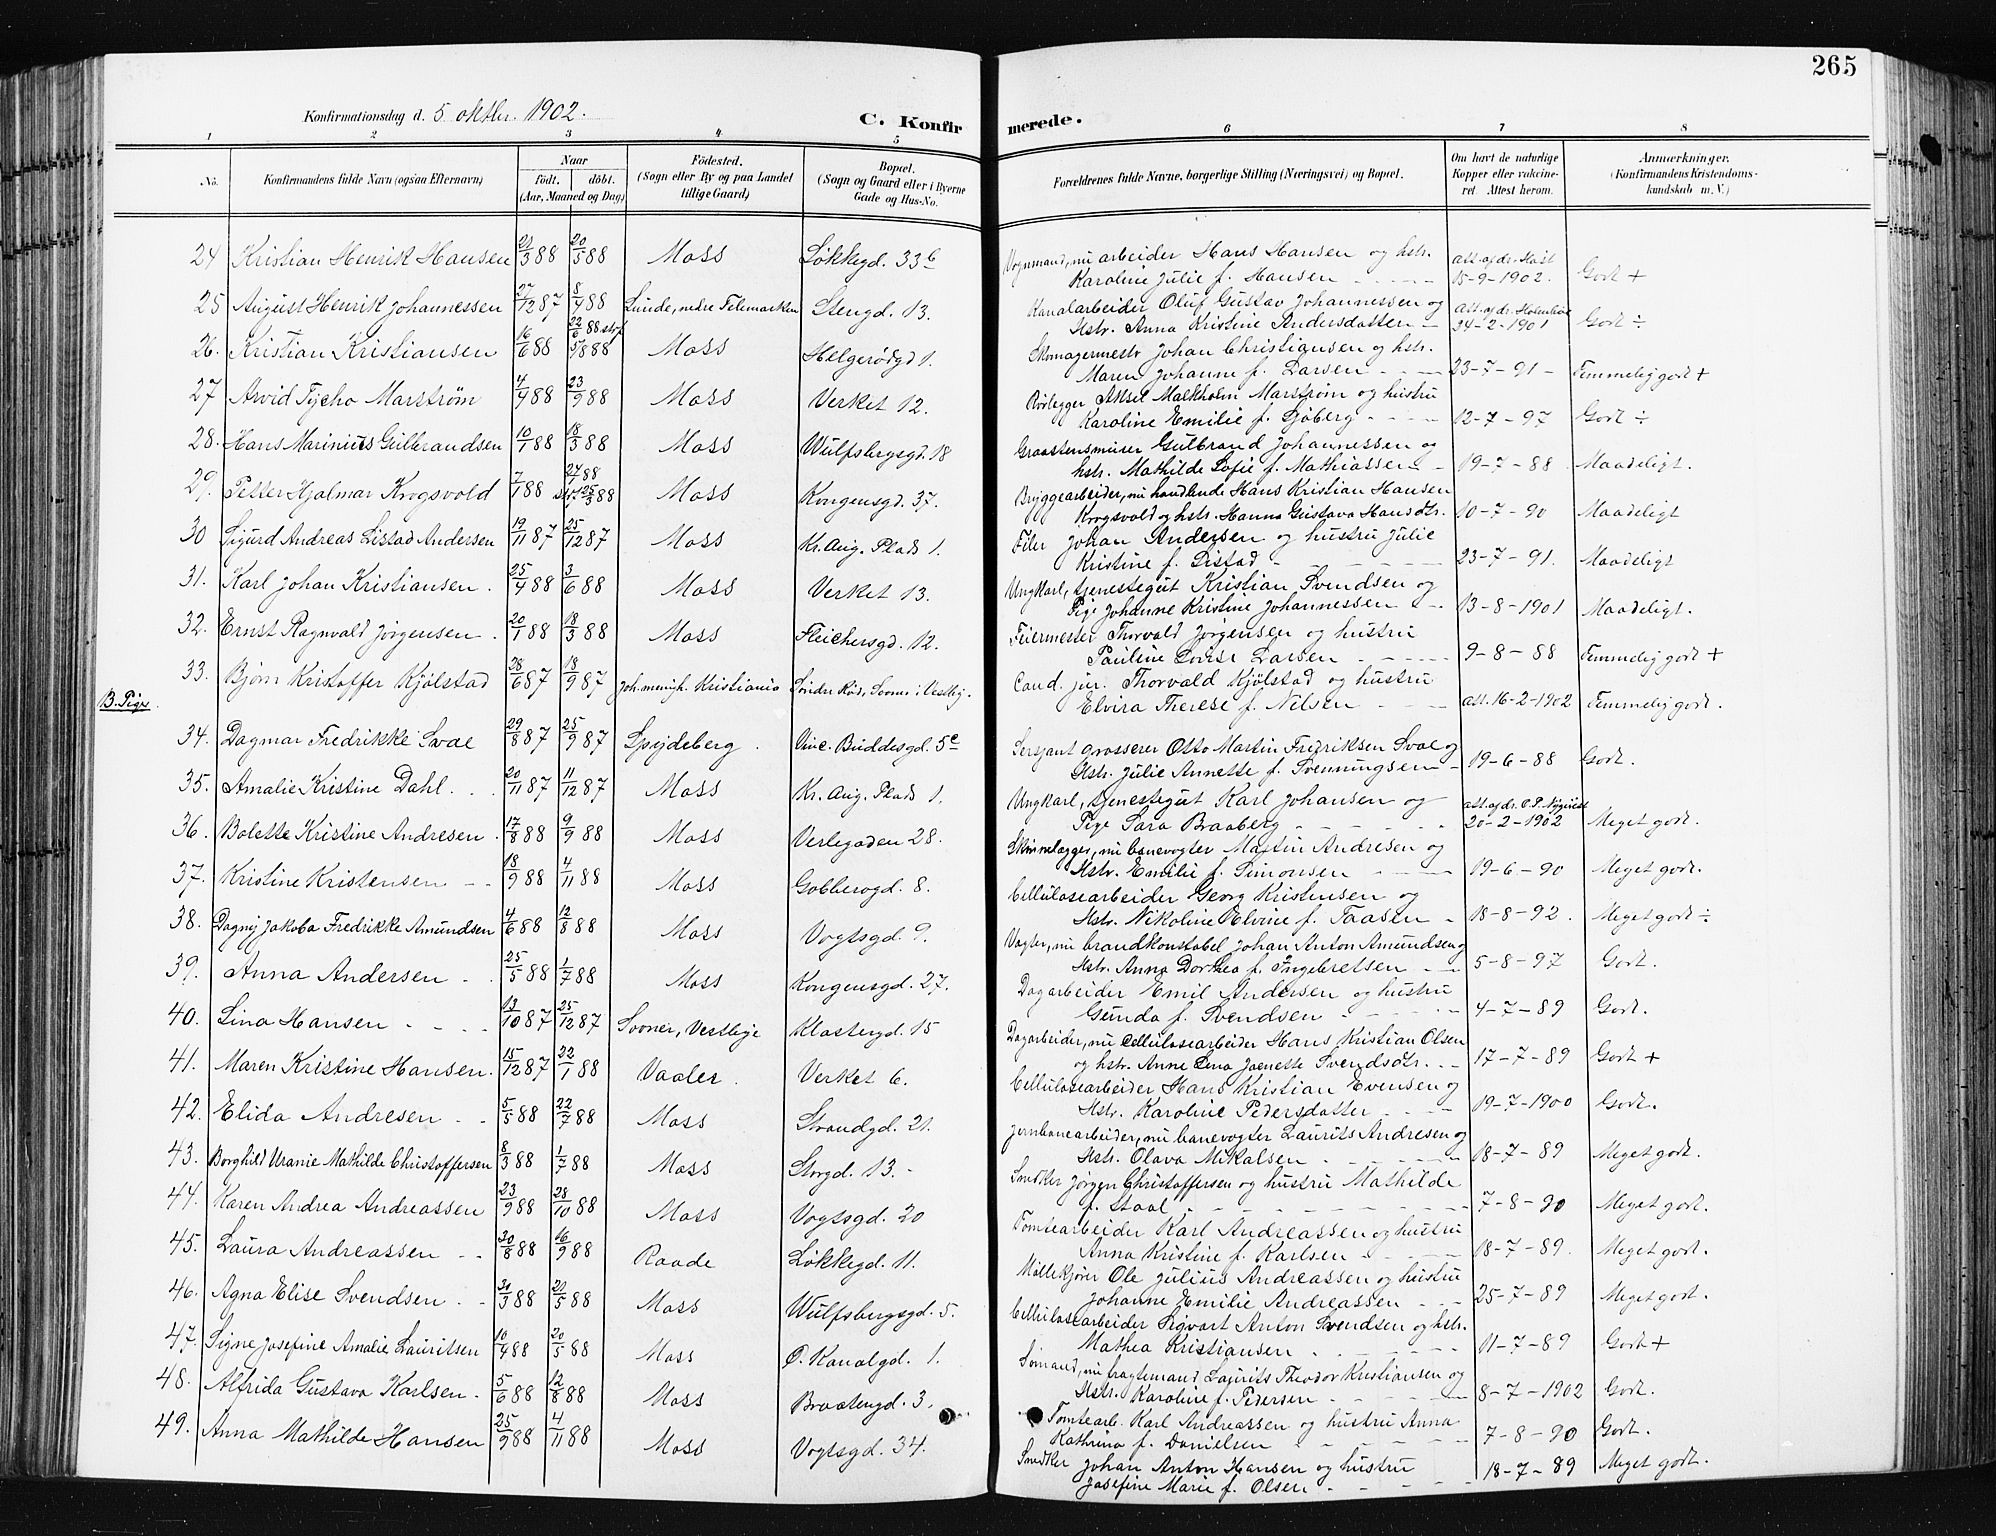 265
Konfirmationsdag d. 5 oktbr. 1902.
C. Konfirmerede.
1 2 3 4 5 6 7 8
No. Konfirmandens fulde Navn (ogsaa Efternavn) Naar født. døbt. (Aar, Maaned og Dag) Fødested. (Sogn eller By og paa Landet tillige Gaard) Bopæl. (Sogn og Gaard eller i Byerne Gade og Hus-No. Forældrenes fulde Navne, borgerlige Stilling (Næringsvei) og Bopæl. Om havt de naturlige Kopper eller vakcineret. Attest herom. Anmærkninger. (Konfirmandens Kristendomskundskab m. V.)
24 Kristian Henrik Hansen 21/3 88 20/5 88 Moss Løkkegd. 33b Vognmand, nu arbeider Hans Hansen og hstr. Karoline Julie f. Hansen att. af dr. 15-9-1902. Godt +
25 August Henrik Johannessen 27/12 87 8/4 88 Lunde, nedre Telemarken Stengd. 13. Kanalarbeider Oluf Gustav Johannessen og Hstr. Anna Kristine Andersdatter att. af dr. 24-2-1901 Godt ÷
26. Kristian Kristiansen 16/6 88 22/6 88 5/8 88 Moss Helgerødgd 1. Skomagermestr Johan Christiansen og hstr. Maren Johanne f. Larsen 23-7-91 Temmelig godt +
27 Arvid Tycho Marstrøm 4/4 88 23/9 88 Moss Verket 12. Rørlegger Aksel Malkholm Marstrøm og hustru Karoline Emilie f. Sjøberg 12-7-97 Godt ÷
28. Hans Marinius Gulbrandsen 10/1 88 18/3 88 Moss Wulfsbergsgd. 18 Graastensmurer Gulbrand Johannessen og hstr. Mathilde Sofie f. Mathiassen 19-7-88 Maadeligt.
29. Petter Hjalmar Krogsvold 7/1 88 24/1 88 25/3 88 Moss Kongensgd. 37. Bryggearbeider, nu handlende Hans Kristian Hansen Krogsvold og hstr. Hanna Gustava Hansdtr. 10-7-90 Maadeligt
30 Sigurd Andreas Listad Andersen 19/11 87 25/12 87 Moss Kr. Aug. Plads 1. Filer Johan Andersen og hustru Julie Kristine f. Listad 23-7-91. Maadeligt
31. Karl Johan Kristiansen. 25/4 88 3/6 88 Moss Verket 13. Ungkarl, tjenestegut Kristian Svendsen og Pige Johanne Kristine Johannessen 13-8-1901 Maadeligt.
32. Ernst Ragnvald Jørgensen. 20/1 88 18/3 88 Moss Fleichersgd. 12. Feiermester Thorvald Jørgensen og hustru Pauline Lovise Larsen 9-8-88 Temmelig godt +
33. Bjørn Kristoffer Kjølstad 28/6 87 18/9 87 Joh. menigh. Kristiania Søndre Rød, Soner i Vestby. Cand. jur. Thorvald Kjølstad og hustru Elvira Therese f. Nilsen att. 16-2-1902 Temmelig godt.
B. Piger
34. Dagmar Fredrikke Svae 29/8 87 25/9 87 Spydeberg. Vinc. Buddesgd. 5c Sersjant grosserer Otto Martin Fredriksen Svae og Hstr. Julie Annette f. Svenningsen 19-6-88 Godt.
35. Amalie Kristine Dahl. 20/11 87 11/12 87 Moss Kr. Aug. Plads 1. Ungkarl, tjenestegut Karl Johansen og Pige Sara Braaberg att. af dr. O. P. 20-2-1902 Meget godt.
36. Bolette Kristine Andresen. 17/8 88 9/9 88 Moss Verlegaden 28. Skinnelægger, nu banevogter Martin Andresen og Hstr. Emilie f. Simonsen 19-6-90 Meget godt.
37. Kristine Kristensen 18/9 88 4/11 88 Moss Gobberogd. 8. Cellulosearbeider Georg Kristensen og Hstr. Nikoline Elvine f. Taasen 18-8-92. Meget godt ÷
38. Dagny Jakoba Fredrikke Amundsen 4/6 88 12/8 88 Moss Vogtsgd. 9. Vogter, nu brandkonstabel Johan Anton Amundsen og Hstr. Anna Dorthea f. Ingebretsen 5-8-97 Godt.
39. Anna Andersen 25/5 88 1/7 88 Moss Kongensgd. 27. Dagarbeider Emil Andersen og hustru Gunda f. Svendsen 4-7-89 Godt.
40. Lina Hansen 13/10 87 25/12 87 Sooner, Vestbye Klostergd. 15 Dagarbeider, nu cellulosearbeider Hans Kristian Olsen og hstr. Anne Lena Jaenette Svendsdtr. 17-7-89 Godt +
41. Maren Kristine Hansen. 15/12 87 22/1 88 Vaaler. Verket 6. Cellulosearbeider Hans Kristian Evensen og Hstr. Karoline Pedersdatter 19-7-1900 Godt.
42. Elida Andresen 5/5 88 22/7 88 Moss Strandgd. 21. Jernbanearbeider, nu banevogter Laurits Andresen og Hstr. Olava Mikalsen 18-7-89 Meget godt.
43. Borghild Uranie Mathilde Christoffersen 8/3 88 1/7 88 Moss Storgd. 13. Snedker Jørgen Christoffersen og hustru Mathilde f. Staal 7-8-90 Meget godt.
44. Karen Andrea Andreassen 23/9 88 28/10 88 Moss Vogtsgd. 20 Tomtearbeider Karl Andreassen og hustru Anna Kristine f. Karlsen 18-7-89. Meget godt.
45. Laura Andreassen 30/8 88 16/9 88 Raade Løkkegd. 11. Møllekjører Ole Julius Andreassen og hustru Johanne Emilie Andreassen 25-7-89 Meget godt.
46. Agna Elise Svendsen 30/3 88 21/5 88 Moss Wulfsbergsgd. 5. Cellulosearbeider Sigvart Anton Svendsen og hstr. Mathea Kristiansen 11-7-89 Godt +
47. Signe Josefine Amalie Lauritsen 10/4 88 20/5 88 Moss Ø. Kanalgd. 1. Sømand, nu fragtemand Laurits Theodor Kristiansen og Hstr. Karoline f. Pedersen 8-7-1902 Godt.
48. Alfrida Gustava Karlsen. 5/6 88 12/8 88 Moss Braatengd. 3. Tomtearb. Karl Andreassen og hustru Anna Kathrina f. Danielsen 7-8-90 Godt.
49. Anna Mathilde Hansen 25/9 88 4/11 88 Moss Vogtsgd. 34. Snedker Johan Anton Hansen og hustru Josefine Marie f. Olsen 18-7-89 Meget godt.